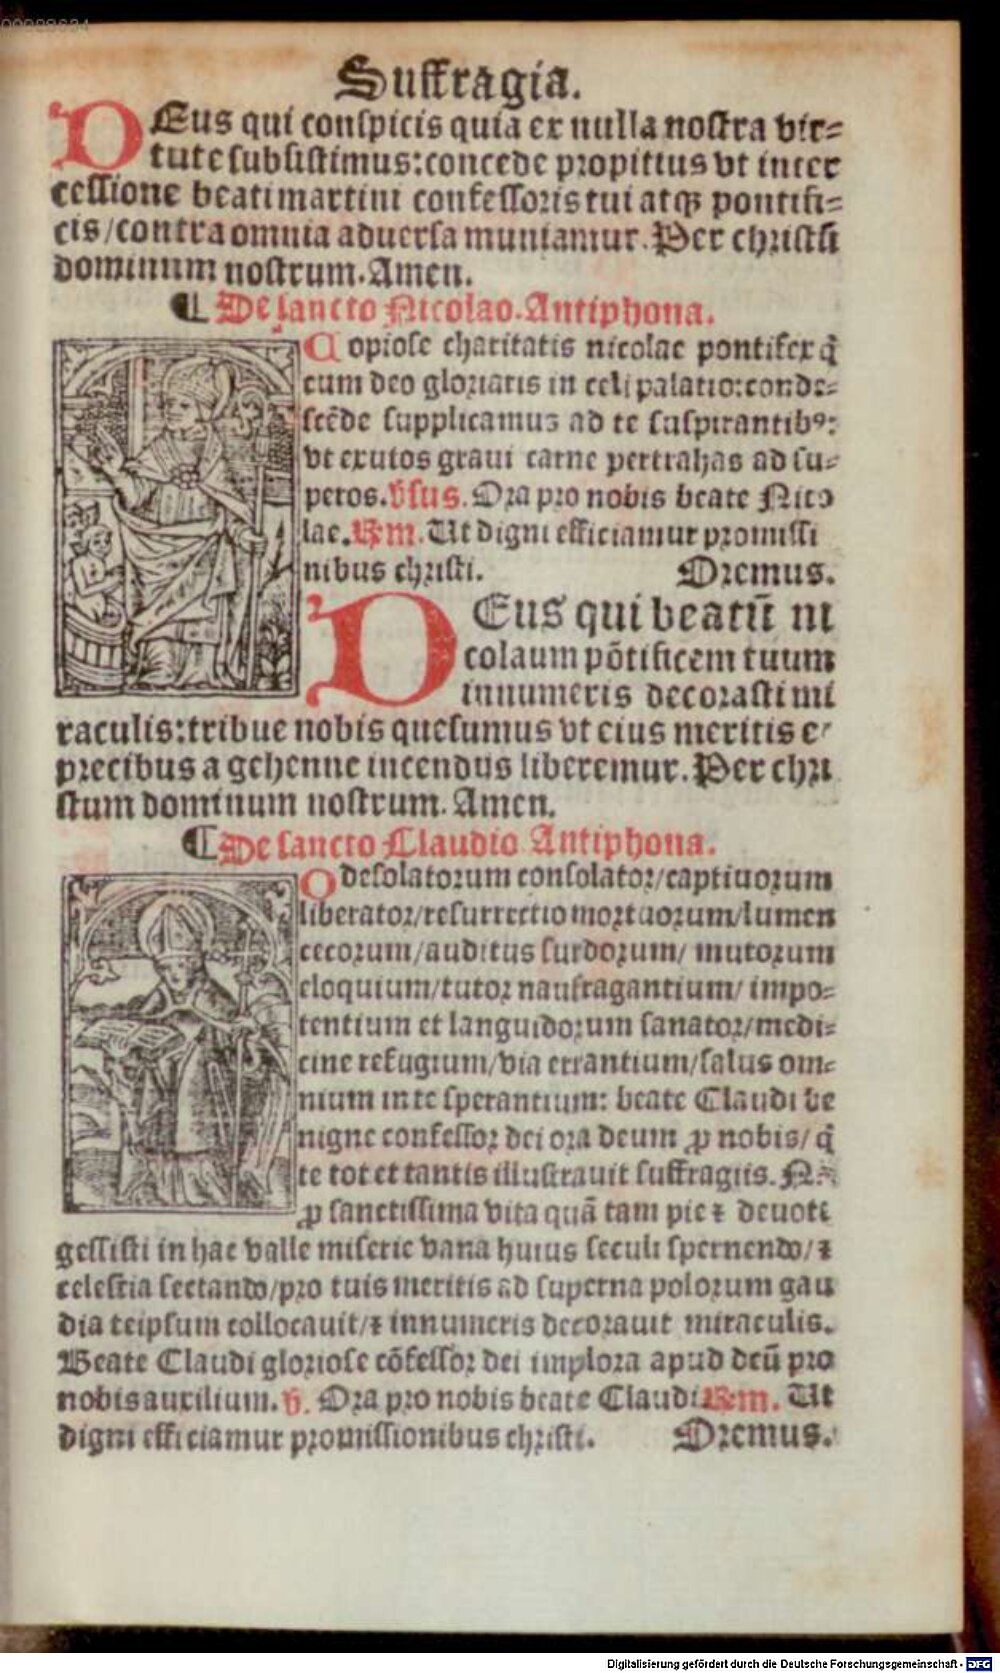 00028634
Suffragia.
DEus qui conspicis quia ex nulla nostra vir=
tute subsistimus: concede propitius vt inter
cessione beati martini confessoris tui atqꝫ pontifi=
cis/contra omnia aduersa muniamur. Per christū
dominum nostrum. Amen.
¶ De sancto Nicolao. Antiphona.
Copiose charitatis nicolae pontifex q̄
cum deo gloriaris in celi palatio: conde=
scēde supplicamus ad te suspirantibꝰ:
vt exutos graui carne pertrahas ad su=
peros. v̄sus. Ora pro nobis beate Nico
lae. R̄m. Ut digni efficiamur promissi
nibus christi. Oremus.
DEus qui beatū ni
colaum pōtificem tuum
innumeris decorasti mi
raculis: tribue nobis quesumus vt eius meritis et
precibus a gehenne incendiis liberemur. Per chri
stum dominum nostrum. Amen.
¶ De sancto Claudio Antiphona.
O desolatorum consolator/captiuorum
liberator/resurrectio mortuorum/lumen
cecorum/auditus surdorum/ mutorum
eloquium/tutor naufragantium/ impo=
tentium et languidorum sanator/medi=
cine refugium/via errantium/salus om=
nium in te sperantium: beate Claudi be
nigne confessor dei ora deum ꝓ nobis/ q̄
te tot et tantis illustrauit suffragiis. Nā
ꝓ sanctissima vita quā tam pie ⁊ deuote
gessisti in hac valle miserie vana huius seculi spernendo/⁊
celestia sectando/pro tuis meritis ad superna polorum gau
dia teipsum collocauit/⁊ innumeris decorauit miraculis.
Beate Claudi gloriose cōfessor dei implora apud deū pro
nobis auxilium. v̄. Ora pro nobis beate Claudi R̄m. Ut
digni efficiamur promissionibus christi. Oremus.
Digitalisierung gefördert durch die Deutsche Forschungsgemeinschaft - DFG